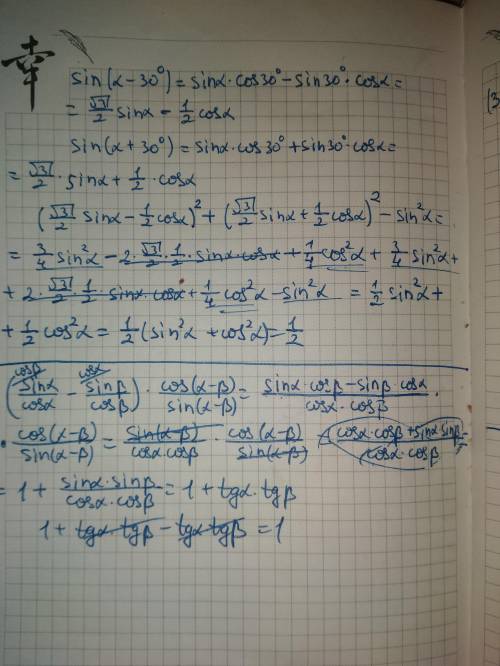 幸
sin(α-30°)=sinα·cos30°-sin30°·cosα=
=√3/2 sinα - 1/2 cosα
sin(α+30°)=sinα·cos30°+sin30°·cosα=
=√3/2·sinα+1/2·cosα
(√3/2 sinα-1/2cosα)²+(√3/2 sinα+1/2cosα)²-sin²α=
=3/4 sin²α-2·√3/2·1/2·sinα·cosα+1/4cos²α+3/4 sin²α+
+2·√3/2·1/2·sinα·cosα+1/4cos²α-sin²α=1/2sin²α+
+1/2cos²α=1/2(sin²α+cos²α)=1/2
(cosβ sinα/cosα - cosα sinβ/cosβ)·cos(α-β)/sin(α-β)=(sinα·cosβ-sinβ·cosα)/(cosα·cosβ)·
·cos(α-β)/sin(α-β)=sin(α-β)/(cosα·cosβ)·cos(α-β)/sin(α-β)=(cosα·cosβ+sinα·sinβ)/(cosα·cosβ)=
=1+(sinα·sinβ)/(cosα·cosβ)=1+tgα·tgβ
1+tgα·tgβ-tgα·tgβ=1
(3